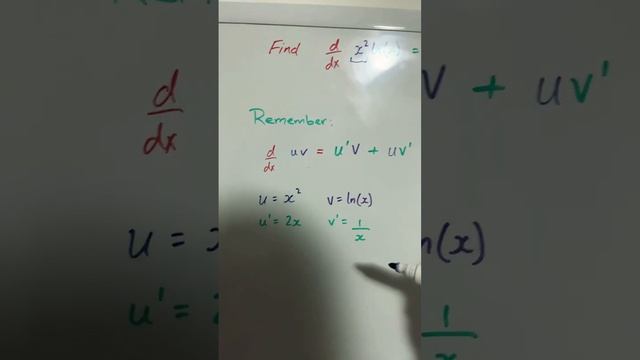 Find d/dx x² ln(x) =
Remember:
d/dx uv = u'v + uv'
u = x² v = ln(x)
u' = 2x v' = 1/x